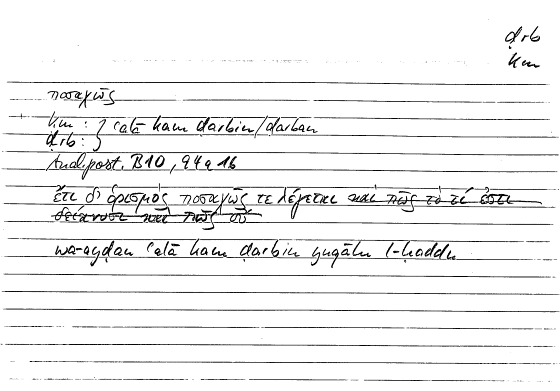 ḍrb
km
ποσαχῶς
km : } ʿalā kam ḍarbin/ḍarban
ḍrb : }
Anal. post. B10, 94a16
ἔτι δʼ ὁρισμός ποσαχῶς τε λέγεται καὶ πῶς τὸ τί ἐστι
δείκνυσι καὶ πῶς οὔ
wa-ayḍan ʿalā kam ḍarbin yuqālu l-ḥaddu